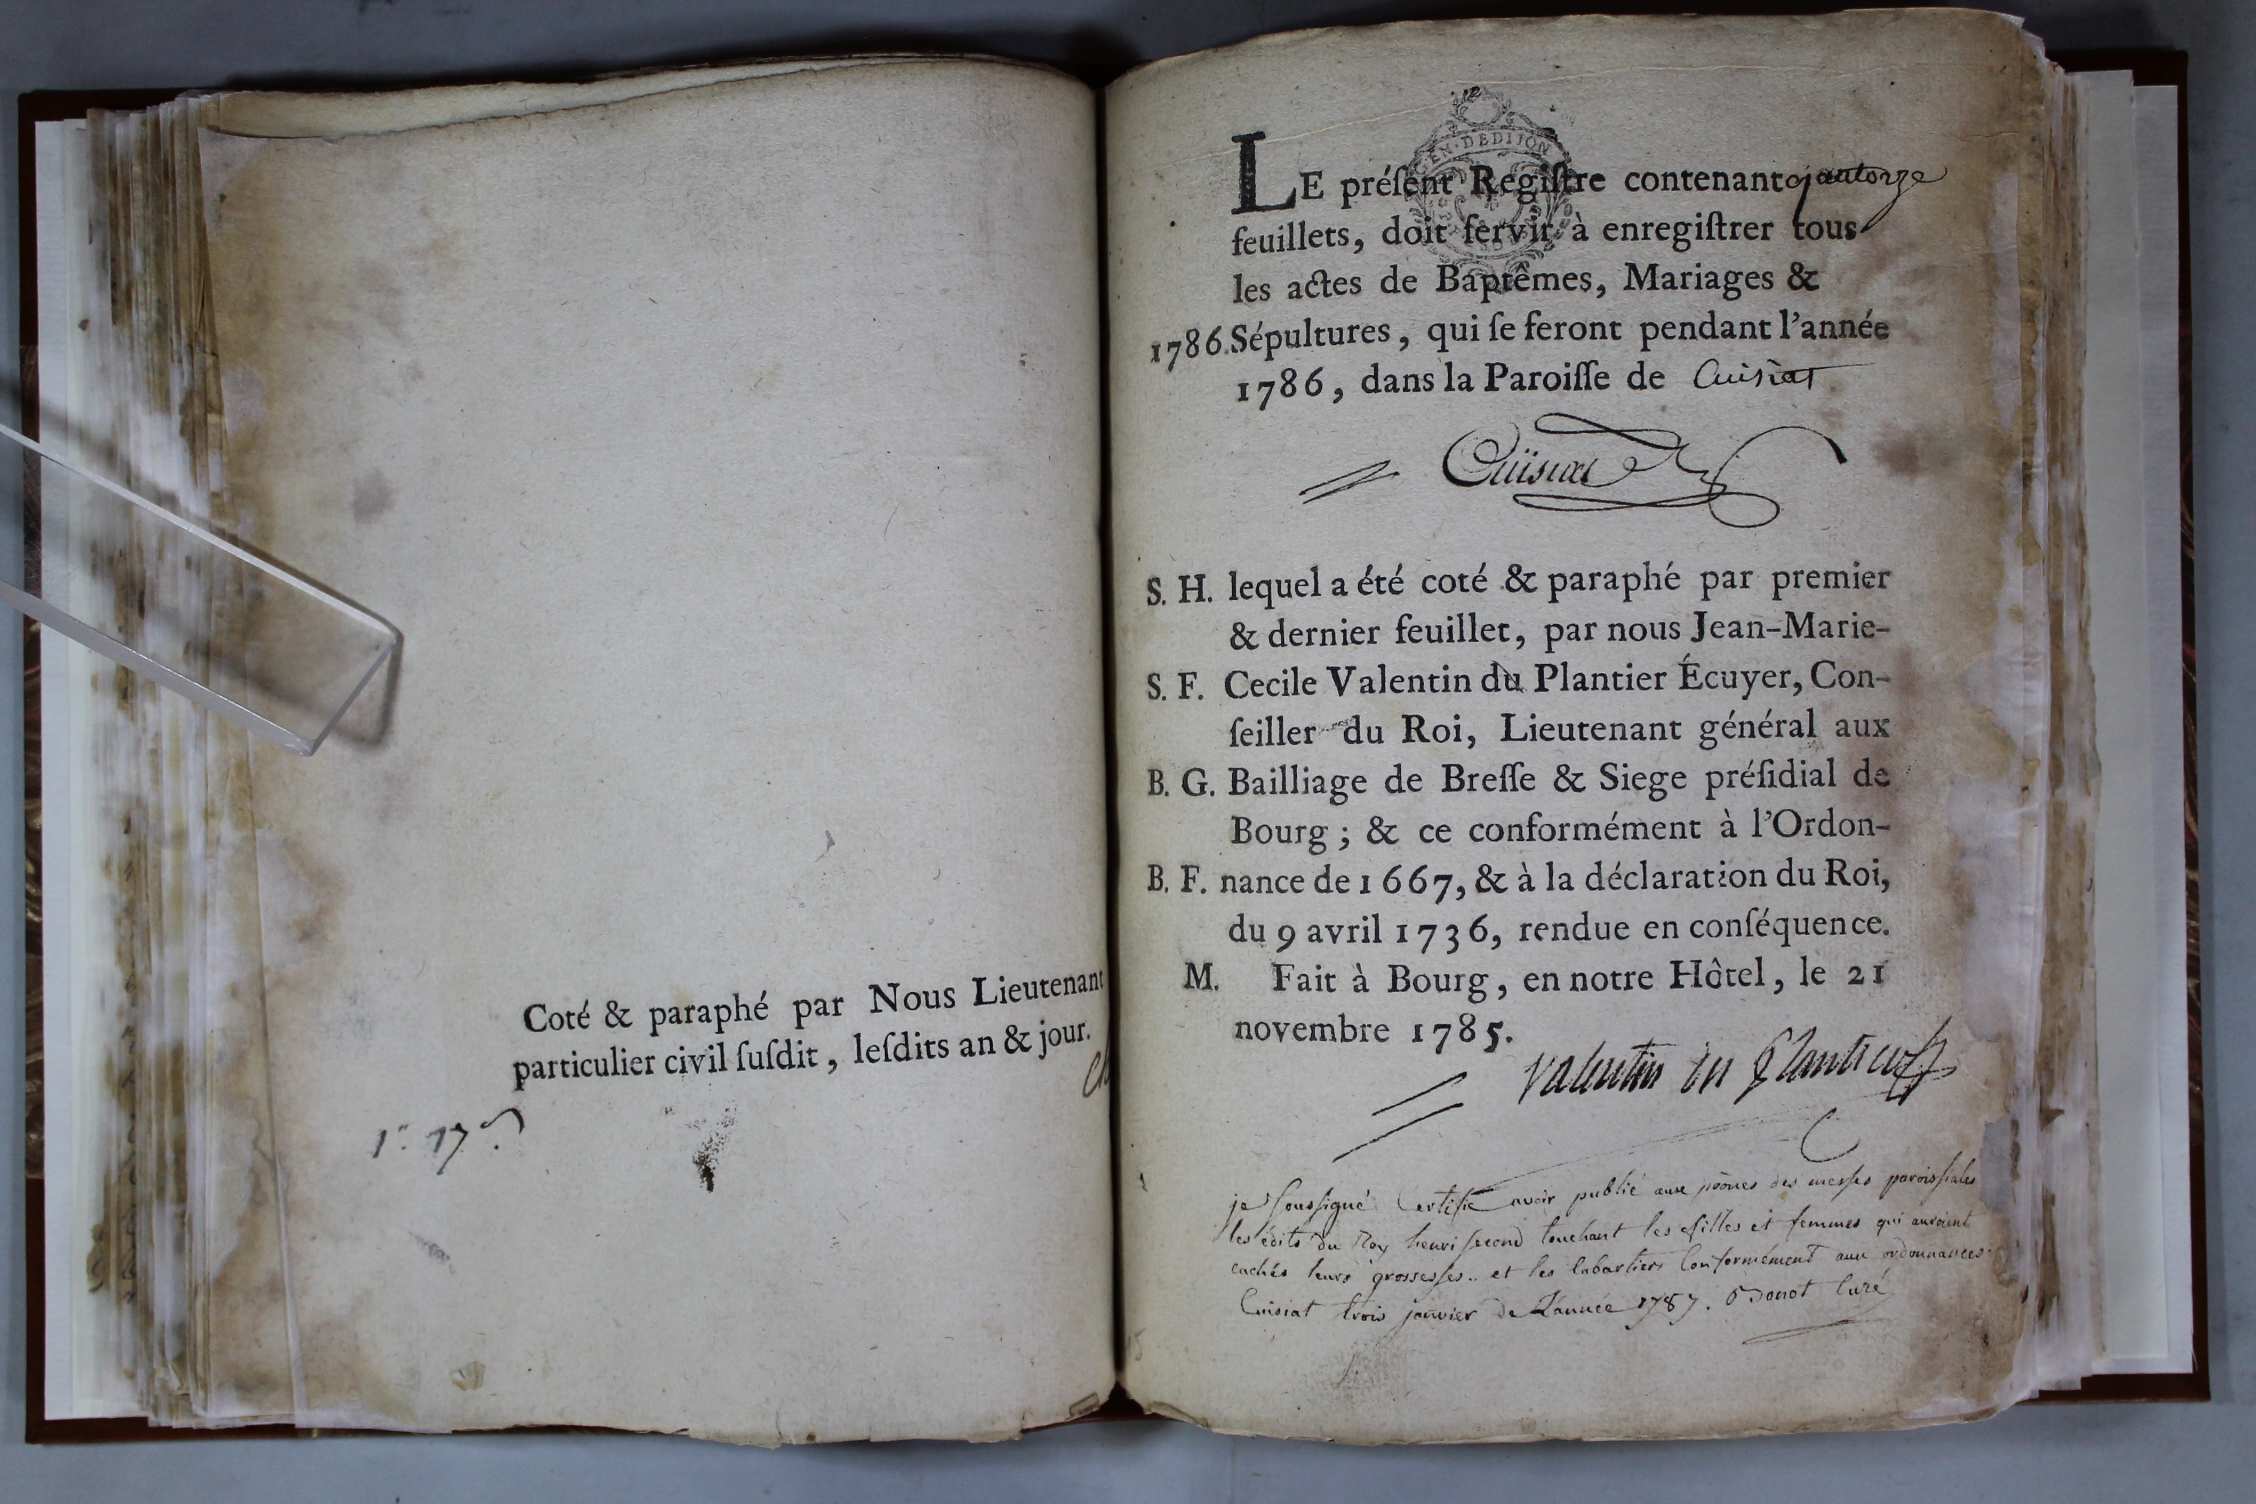 Coté & paraphé par Nous Lieutenant
particulier civil ſuſdit, leſdits an & jour.
GEN · DE DIJON
LE préſent Regiſtre contenant quatorze
feuillets, doit ſervir à enregiſtrer tous
les actes de Baptêmes, Mariages &
1786. Sépultures, qui ſe feront pendant l'année
1786, dans la Paroiſſe de Cuisiat
Cuisiat
S. H. lequel a été coté & paraphé par premier
& dernier feuillet, par nous Jean-Marie-
S. F. Cecile Valentin du Plantier Écuyer, Con-
ſeiller du Roi, Lieutenant général aux
B. G. Bailliage de Breſſe & Siege préſidial de
Bourg ; & ce conformément à l'Ordon-
B. F. nance de 1667, & à la déclaration du Roi,
du 9 avril 1736, rendue en conſéquence.
M. Fait à Bourg, en notre Hôtel, le 21
novembre 1785.
Valentin du Plantier
je Soussigné Certifie avoir publié aux prônes des messes paroissiales
les édits du Roy henri second touchant les filles et femmes qui auroient
cachés leurs grossesses .. et les conformément aux ordonnances.
Cuisiat trois janvier de L'année 1787. Donot Curé